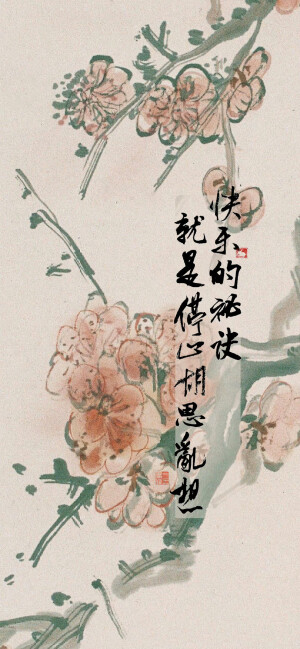 快乐的秘诀
就是停止胡思亂想